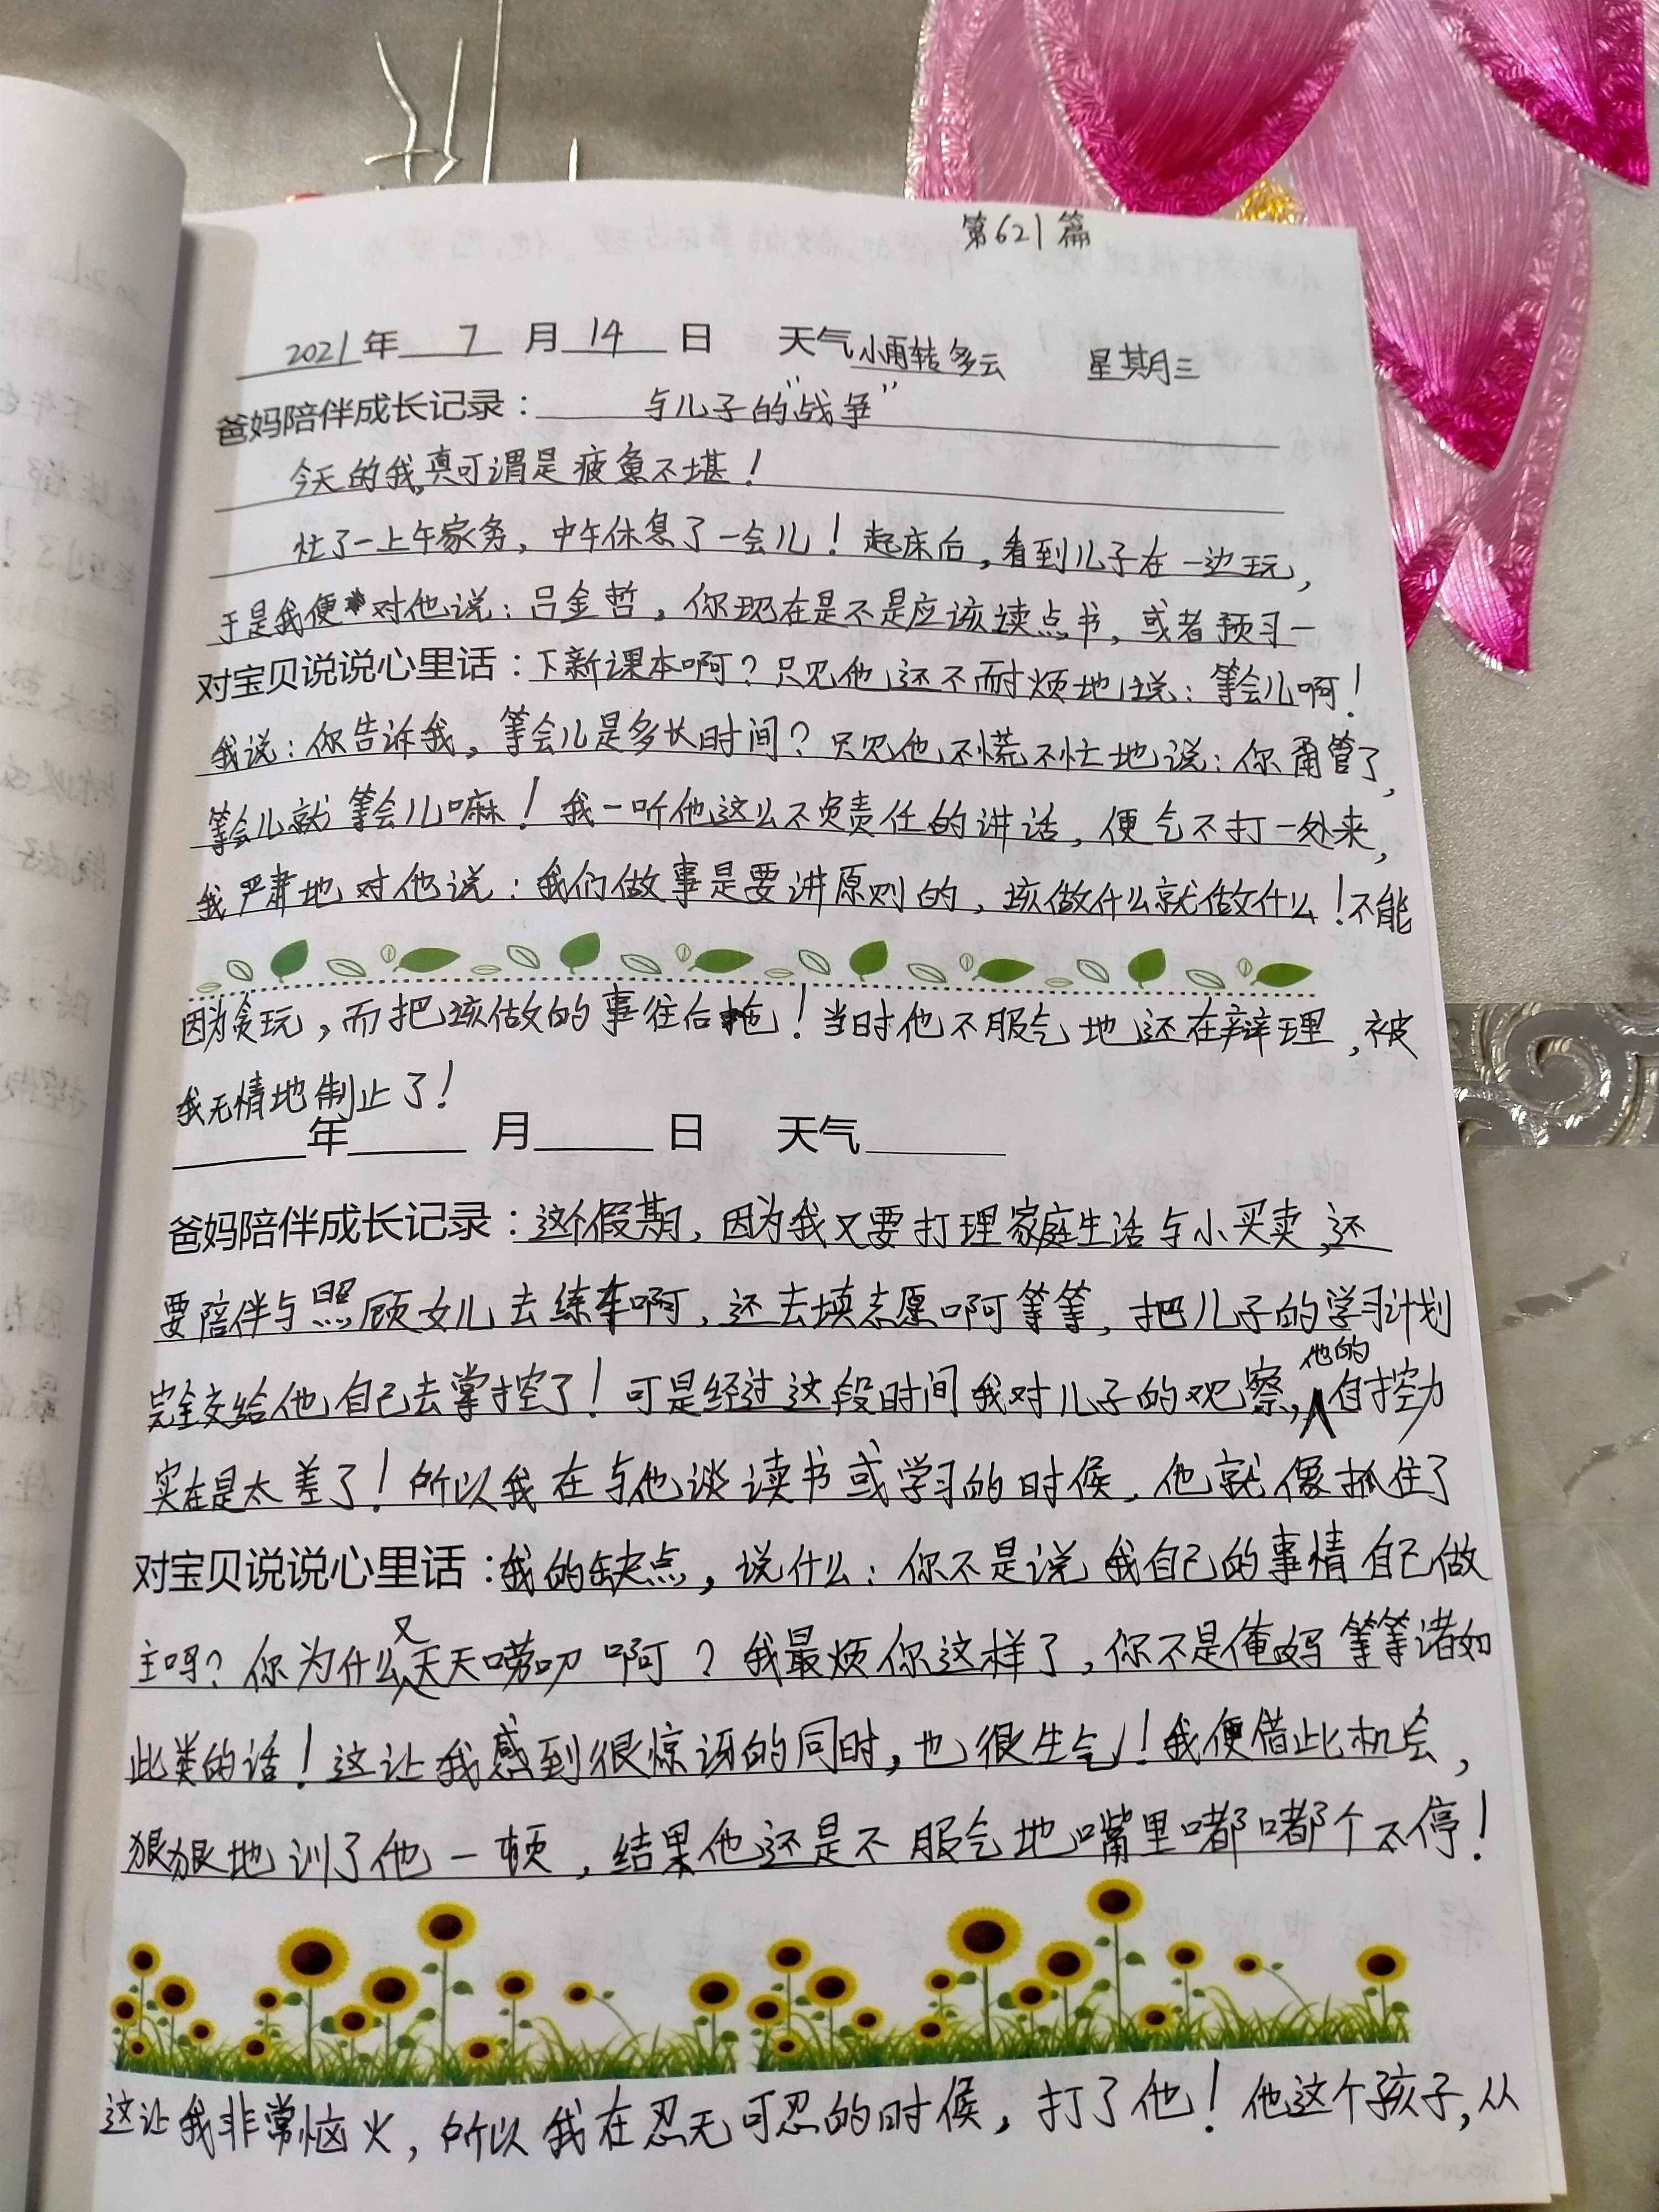 第621篇
2021年 7 月 14 日 天气小雨转多云 星期三
爸妈陪伴成长记录：与儿子的"战争"
今天的我，真可谓是疲惫不堪！
忙了一上午家务，中午休息了一会儿！起床后，看到儿子在一边玩，
于是我便对他说：吕金哲，你现在是不是应该读点书，或者预习一
对宝贝说说心里话：下新课本啊？只见他还不耐烦地说：等会儿啊！
我说：你告诉我，等会儿是多长时间？只见他不慌不忙地说：你甭管了，
等会儿就等会儿嘛！我一听他这么不负责任的讲话，便气不打一处来，
我严肃地对他说：我们做事是要讲原则的，该做什么就做什么！不能
因为贪玩，而把该做的事往后拖！当时他不服气地还在辩理，被
我无情地制止了！
年 月 日 天气
爸妈陪伴成长记录：这个假期，因为我又要打理家庭生活与小买卖，还
要陪伴与照顾女儿去练车啊，还去填志愿啊等等，把儿子的学习计划
完全交给他自己去掌控了！可是经过这段时间我对儿子的观察，他的自控力
实在是太差了！所以我在与他谈读书或学习的时候，他就像抓住了
对宝贝说说心里话：我的缺点，说什么：你不是说我自己的事情自己做
主吗？你为什么又天天唠叨啊？我最烦你这样了，你不是俺妈等等诸如
此类的话！这让我感到很惊讶的同时，也很生气！我便借此机会，
狠狠地训了他一顿，结果他还是不服气地嘴里嘟嘟个不停！
这让我非常恼火，所以我在忍无可忍的时候，打了他！他这个孩子，从